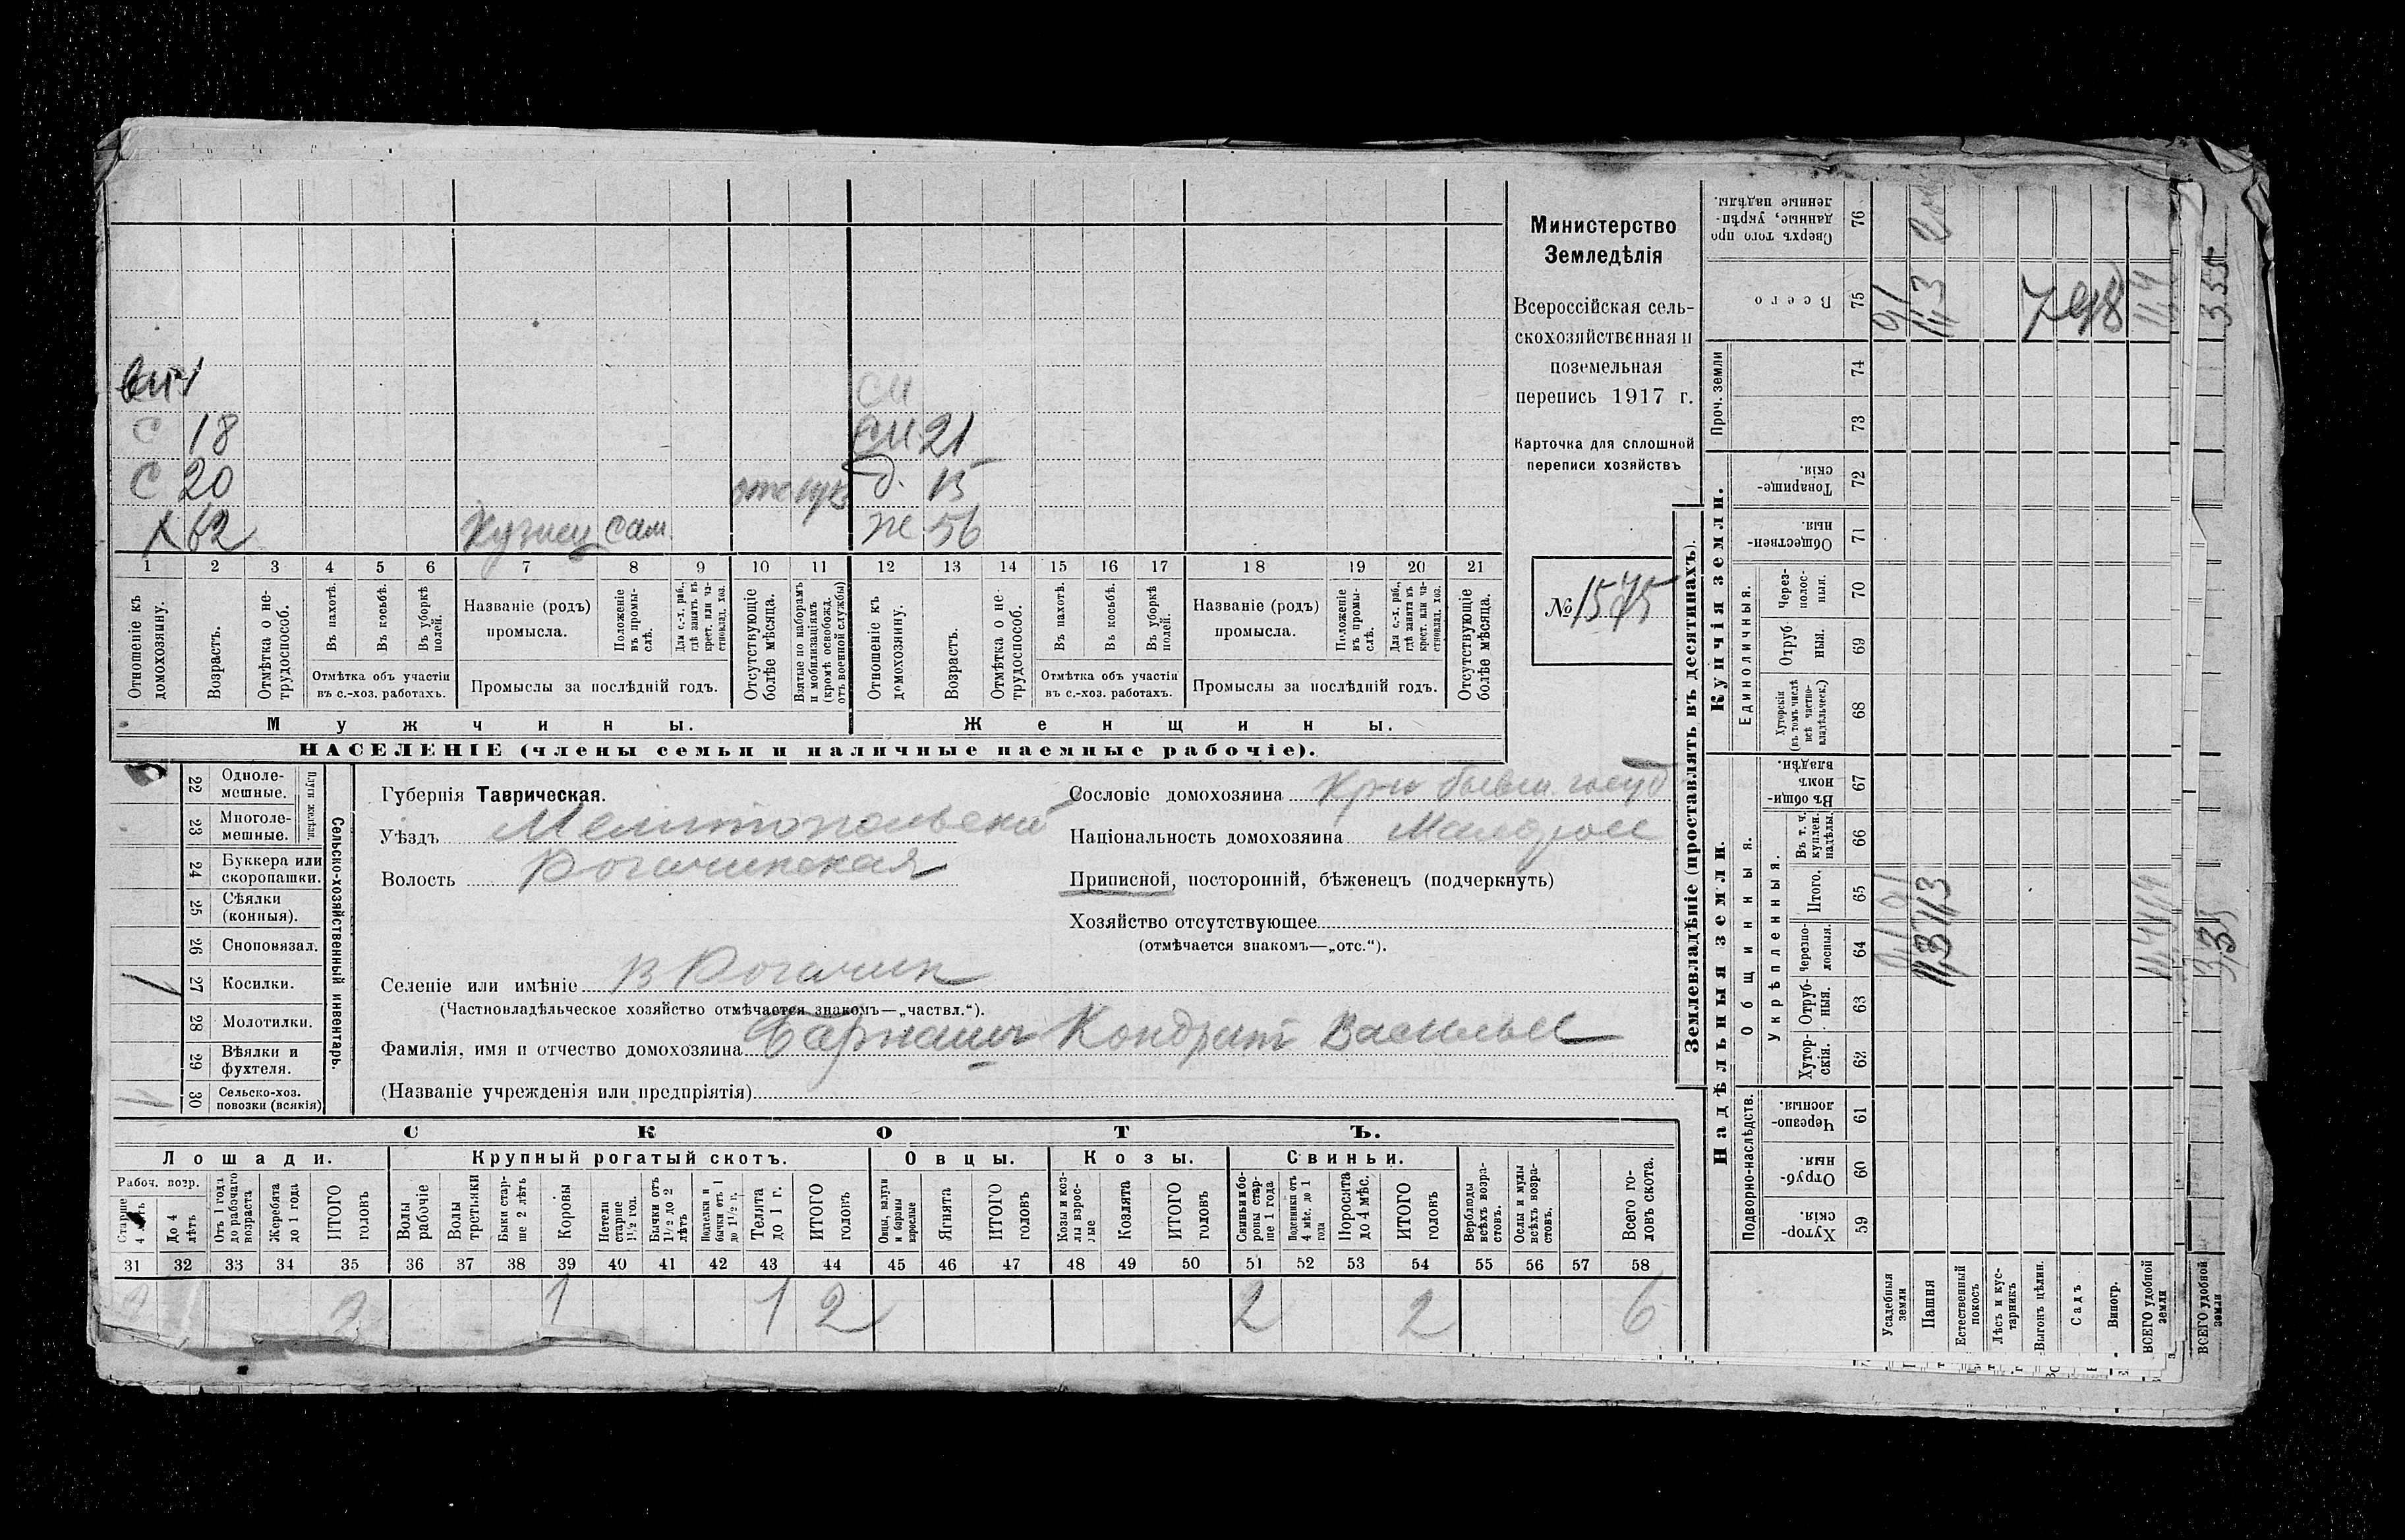 вн 1
С 18
С 20
х 62 Кузнец сам.
сн
сн 21
д. 15
ж 56
1 2 3 4 5 6 7 8 9 10 11 12 13 14 15 16 17 18 19 20 21
Отношеніе къ домохозяину.
Возрастъ.
Отмѣтка о нетрудоспособ.
Въ пахотѣ.
Въ косьбѣ.
Въ уборкѣ полей.
Отмѣтка объ участіи
въ с.-хоз. работахъ.
Названіе (родъ)
промысла.
Положеніе въ промыслѣ.
Для с.-х. раб., гдѣ занятъ въ крест. или частновлад. хоз.
Промыслы за послѣдній годъ.
Отсутствующіе болѣе мѣсяца.
Взятые по наборамъ и мобилизаціямъ (кромѣ освобожд. отъ военной службы)
Отношеніе къ домохозяину.
Возрастъ.
Отмѣтка о нетрудоспособ.
Въ пахотѣ.
Въ косьбѣ.
Въ уборкѣ полей.
Отмѣтка объ участіи
въ с.-хоз. работахъ.
Названіе (родъ)
промысла.
Положеніе въ промыслѣ.
Для с.-х. раб., гдѣ занята въ крест. или частновлад. хоз.
Промыслы за послѣдній годъ.
Отсутствующіе болѣе мѣсяца.
Мужчины. Женщины.
НАСЕЛЕНІЕ (члены семьи и наличные наемные рабочіе).
Министерство
Земледѣлія
Всероссійская сель-
скохозяйственная и
поземельная
перепись 1917 г.
Карточка для сплошной
переписи хозяйствъ
№ 1575
22 Однолемешные.
23 Многолемешные.
Плуги желѣзн.
24 Буккера или скоропашки.
25 Сѣялки (конныя).
26 Сноповязал.
1 27 Косилки.
28 Молотилки.
29 Вѣялки и фухтеля.
1 30 Сельско-хоз. повозки (всякія)
Сельско-хозяйственный инвентарь.
Губернія Таврическая.
Уѣздъ Мелитопольский
Волость Рогачинская
Сословіе домохозяина Кр-н бывш. госуд
Національность домохозяина Малорос
Приписной, посторонній, бѣженецъ (подчеркнуть)
Хозяйство отсутствующее
(отмѣчается знакомъ—„отс.“).
Селеніе или имѣніе В Рогачик
(Частновладѣльческое хозяйство отмѣчается знакомъ—„частвл.“).
Фамилія, имя и отчество домохозяина Барнаш Кондрат Васильев
(Названіе учрежденія или предпріятія)
СКОТЪ.
Лошади. Крупный рогатый скотъ. Овцы. Козы. Свиньи.
Рабоч. возр.
Старше 4 лѣтъ
До 4 лѣтъ
Отъ 1 года до рабочаго возраста
Жеребята до 1 года
ИТОГО головъ
Волы рабочіе
Волы третьяки
Быки старше 2 лѣтъ
Коровы
Нетели старше 1 1/2 год.
Бычки отъ 1 1/2 до 2 лѣтъ
Подтелки и бычки отъ 1 до 1 1/2 г.
Телята до 1 г.
ИТОГО головъ
Овцы, валухи и бараны взрослые
Ягнята
ИТОГО головъ
Козы и козлы взрослые
Козлята
ИТОГО головъ
Свиньи и боровы старше 1 года
Подсвинки отъ 4 мѣс. до 1 года
Поросята до 4 мѣс.
ИТОГО головъ
Верблюды всѣхъ возрастовъ.
Ослы и мулы всѣхъ возрастовъ.
Всего головъ скота.
31 32 33 34 35 36 37 38 39 40 41 42 43 44 45 46 47 48 49 50 51 52 53 54 55 56 57 58
2 2 1 1 2 2 2 6
Землевладѣніе (проставлять въ десятинахъ).
Надѣльныя земли. Купчія земли. Проч. земли
Подворно-наслѣдств. Общинныя. Единоличныя.
Укрѣпленныя.
Хуторскія. 59
Отрубныя. 60
Черезполосныя. 61
Хуторскія. 62
Отрубныя. 63
Черезполосныя. 64
Итого. 65
Въ т. ч. куплен. надѣлы. 66
Въ общинномъ владѣн. 67
Хуторскія (въ томъ числѣ всѣ частновладѣльческ.) 68
Отрубныя. 69
Черезполосныя. 70
Общественныя. 71
Товарищескія. 72
73
74
Всего 75
Сверхъ того проданные, укрѣпленные надѣлы. 76
Усадебныя земли
Пашня 11,3 11,3 11,3
Естественный покосъ
Лѣсъ и кустарникъ
Выгонъ цѣлин.
Садъ
Виногр.
ВСЕГО удобной земли 11,4 11,4 11,4
ВСЕГО удобной земли